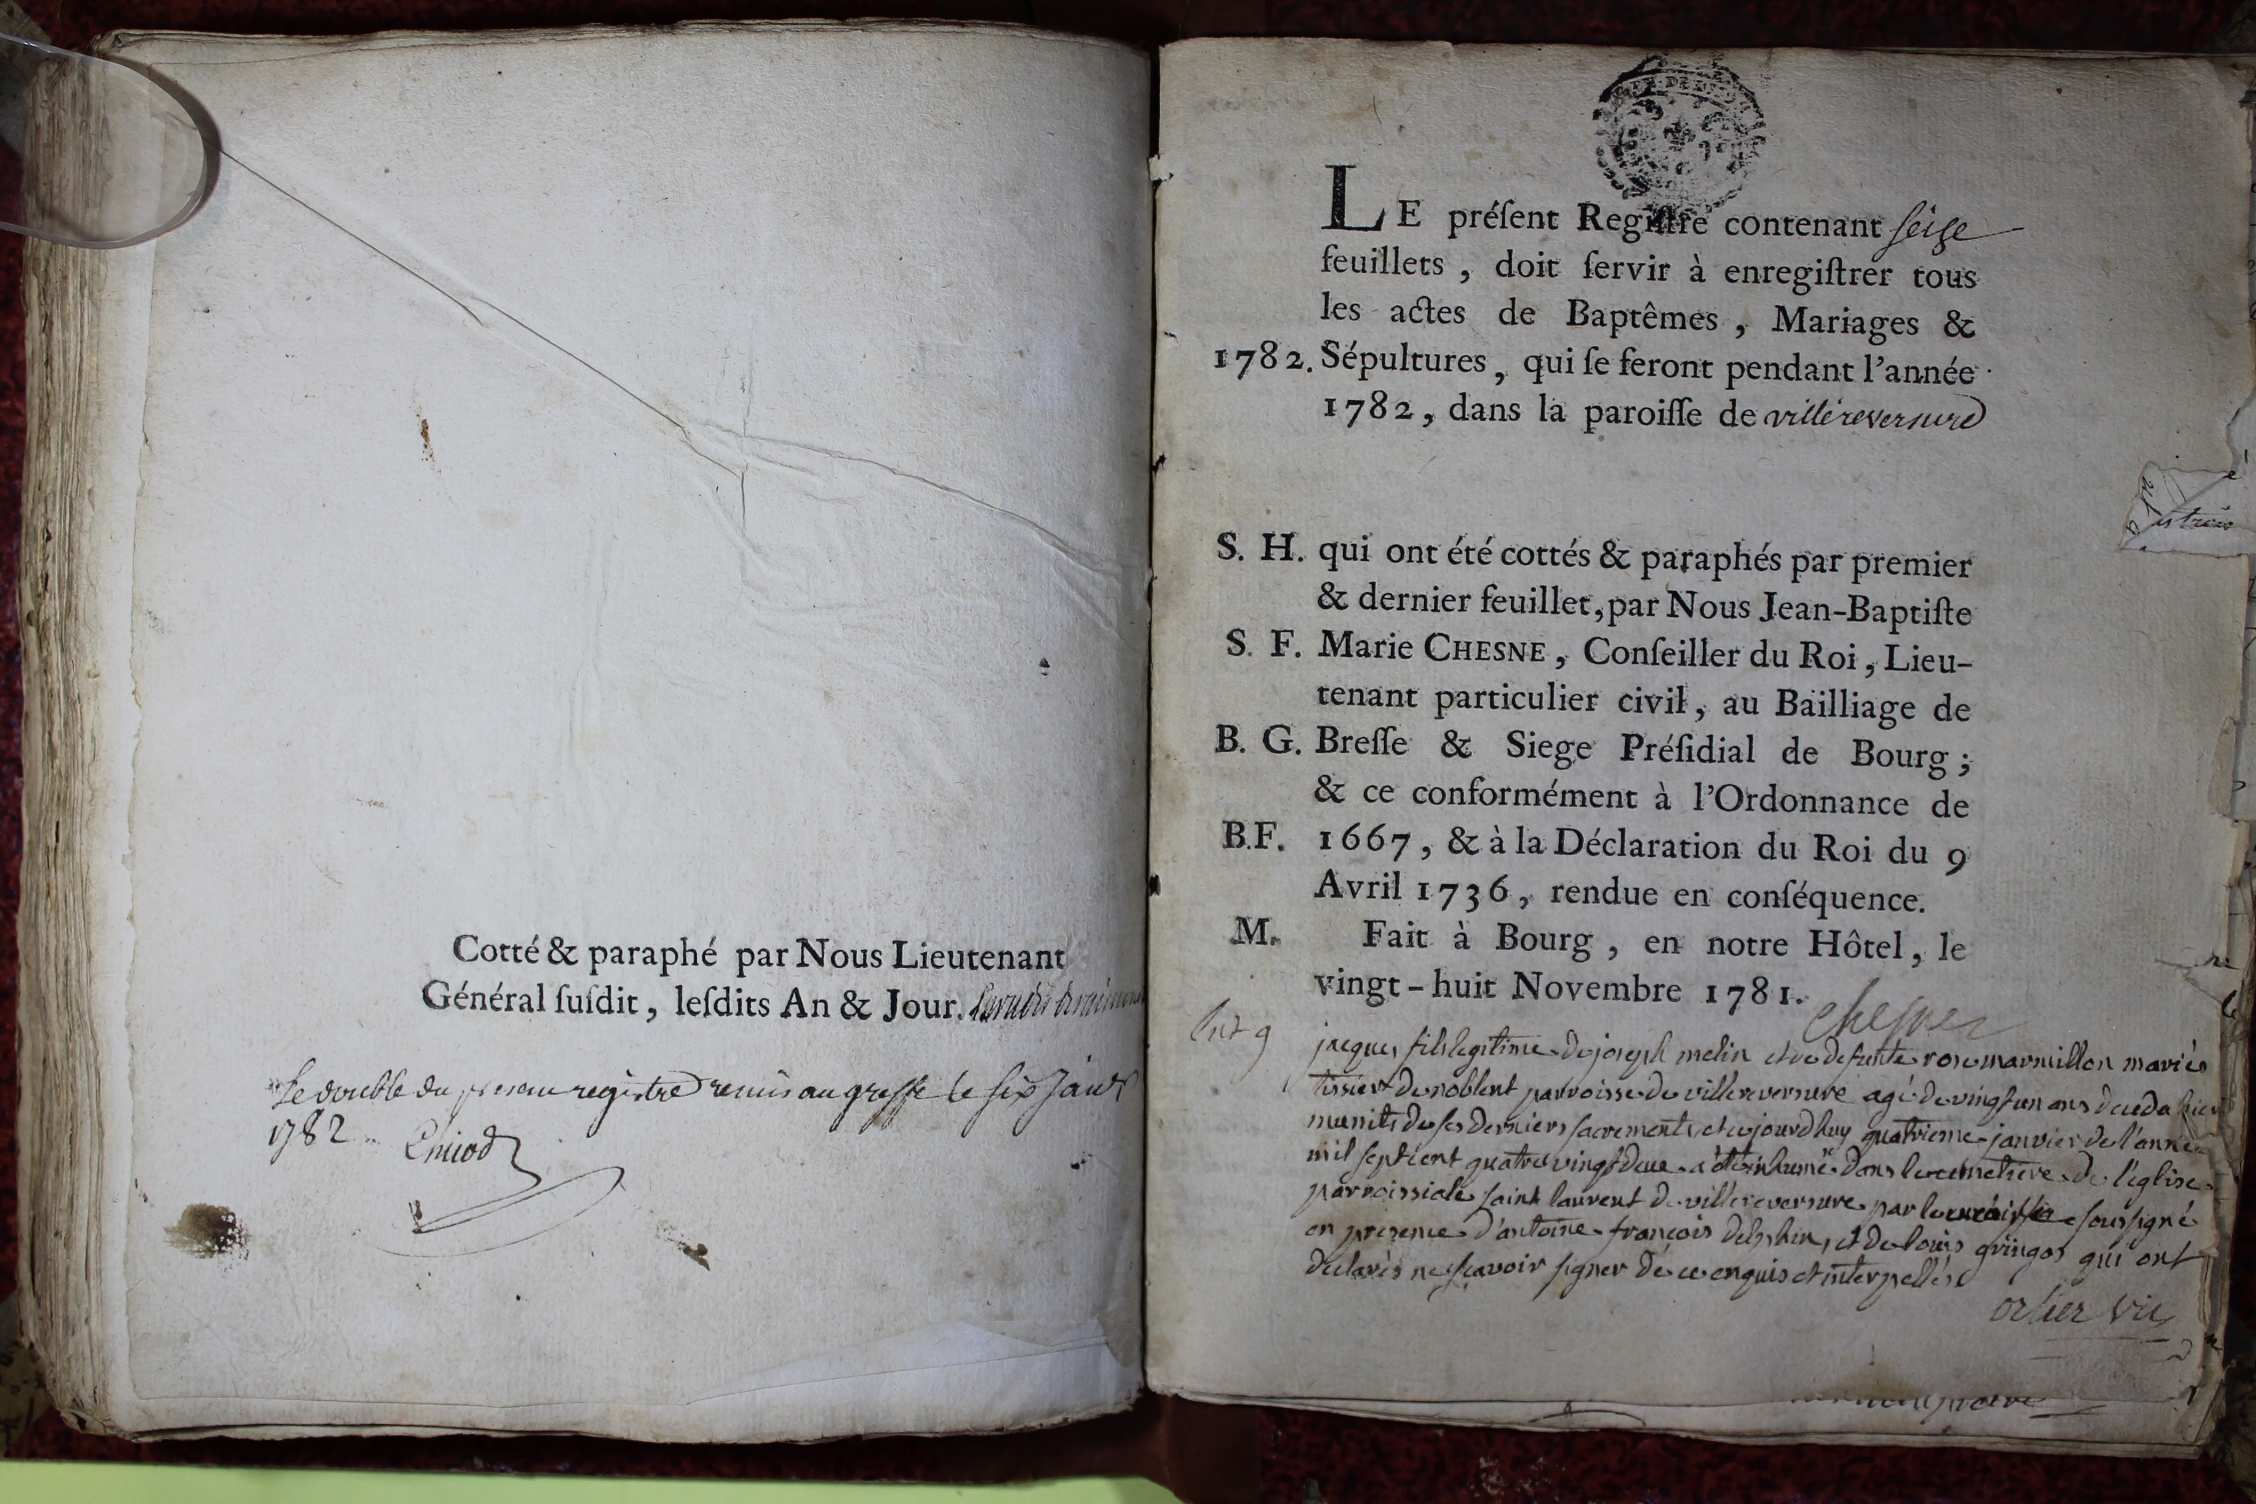 Cotté & paraphé par Nous Lieutenant
Général ſuſdit, leſdits An & Jour.
Le double du present registre remis au greffe le six Janvr
1782
LE préſent Regiſtre contenant seize
feuillets, doit ſervir à enregiſtrer tous
les actes de Baptêmes, Mariages &
1782. Sépultures, qui ſe feront pendant l'année
1782, dans la paroiſſe de villereversure
S. H. qui ont été cottés & paraphés par premier
& dernier feuillet, par Nous Jean-Baptiſte
S. F. Marie CHESNE, Conſeiller du Roi, Lieu-
tenant particulier civil, au Bailliage de
B. G. Breſſe & Siege Préſidial de Bourg;
& ce conformément à l'Ordonnance de
B.F. 1667, & à la Déclaration du Roi du 9
Avril 1736, rendue en conſéquence.
M. Fait à Bourg, en notre Hôtel, le
vingt-huit Novembre 1781.
Chesne
jacques fils legitime de joseph melin et de defunte rose marmillon mariés
tissier de noblent parroisse de villereversure agé de vingt un ans decedé hier
munits de ses derniers sacrements, et cejourdhuy quatrieme janvier de l'année
mil septcent quatre vingt deux a été inhumé dans le cimetiere de l'église
parroissiale saint laurent de villereversure par le soussigné
en presence d'antoine françois delphin, et de louis gringos qui ont
declarés ne sçavoir signer de ce enquis et interpellés
orsier vic